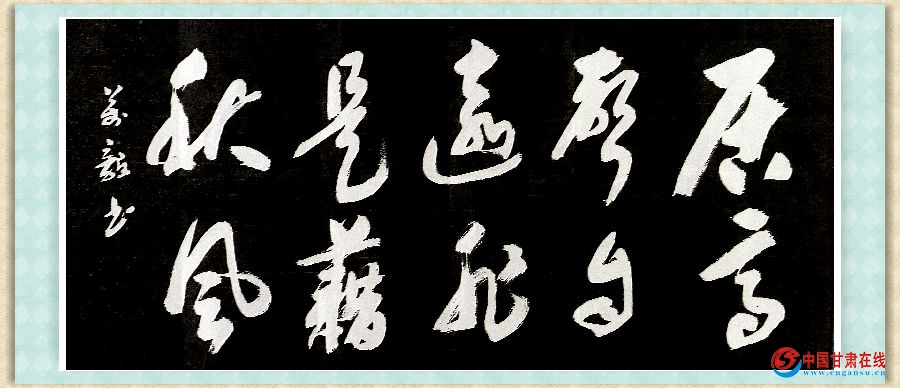 居高
声自
远非
是藉
秋风
万毅书
中国甘肃在线
www.cngansu.cn